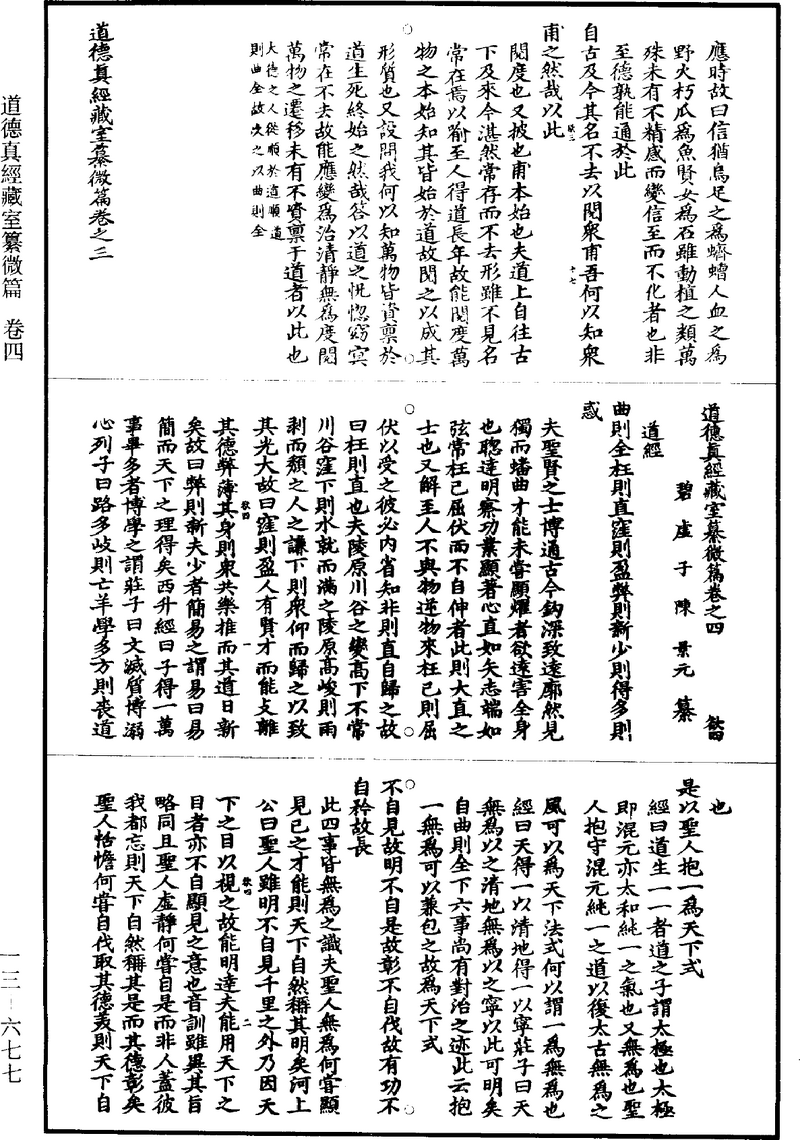 應時故曰信猶烏足之為蠐螬人血之為
野火朽瓜為魚賢女為石雖動植之類萬
殊未有不精感而變信至而不化者也非
至德孰能通於此
自古及今其名不去以閱衆甫吾何以知衆
甫之然哉以此
閱度也又披也甫本始也夫道上自往古
下及來今湛然常存而不去形雖不見名
常在焉以喻至人得道長年故能閱度萬
物之本始知其皆始於道故閱之以成其
形質也又設問我何以知萬物皆資稟於
道生死終始之然哉答以道之恍惚窈冥
常在不去故能應變為治清靜無為度閱
萬物之遷移未有不資稟于道者以此也
大德之人從順於道順道
則曲全故次之以曲則全
道德真經藏室纂微篇卷之三
道德真經藏室纂微篇卷之四
欲四
碧虛子陳景元纂
道經
曲則全枉則直窪則盈弊則新少則得多則
惑
夫聖賢之士博通古今鈎深致遠廓然見
獨而蟠曲才能未嘗顯耀者欲遠害全身
也聰達明察功業顯著心直如矢志端如
弦常枉己屈伏而不自伸者此則大直之
士也又解至人不與物逆物來枉己則屈
伏以受之彼必內省知非則直自歸之故
曰枉則直也夫陵原川谷之變高下不常
川谷窪下則水就而滿之陵原高峻則雨
剥而頹之人之謙下則衆仰而歸之以致
其光大故曰窪則盈人有賢才而能支離
其德弊薄其身則衆共樂推而其道日新
矣故曰弊則新夫少者簡易之謂易曰易
簡而天下之理得矣西升經曰子得一萬
事畢多者博學之謂莊子曰文滅質博溺
心列子曰路多歧則亡羊學多方則喪道
也
是以聖人抱一為天下式
經曰道生一一者道之子謂太極也太極
即混元亦太和純一之氣也又無為也聖
人抱守混元純一之道以復太古無為之
風可以為天下法式何以謂一為無為也
經曰天得一以清地得一以寧莊子曰天
無為以之清地無為以之寧以此可明矣
自曲則全下六事尚有對治之迹此云抱
一無為可以兼包之故為天下式
不自見故明不自是故彰不自伐故有功不
自矜故長
此四事皆無為之識夫聖人無為何嘗顯
見己之才能則天下自然稱其明矣河上
公曰聖人雖明不自見千里之外乃因天
下之目以視之故能明達夫能用天下之
目者亦不自顯見之意也音訓雖異其旨
略同且聖人虛靜何嘗自是而非人蓋彼
我都忘則天下自然稱其是而其德彰矣
聖人恬憺何嘗自伐取其德美則天下自
道德真經藏室纂微篇 卷四
一三—六七七